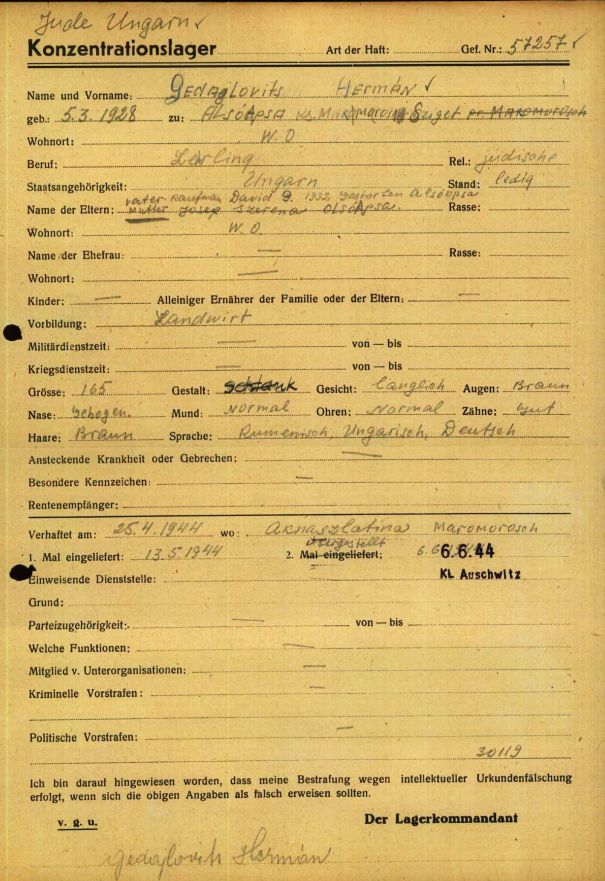 Jude Ungarn
Konzentrationslager Art der Haft: Gef. Nr.: 57257
Name und Vorname: Gedajlovits Hermán
geb.: 5.3.1928 zu: Alsóapsa Sziget
Wohnort: W.O
Beruf: Rel.: jüdische
Staatsangehörigkeit: Ungarn Stand: ledig
Name der Eltern: Vater: Kaufman David G. 1932 gestorben Alsóapsa Rasse:
Mutter Josep Szerena AlsóApsa.
Wohnort: W.O
Name der Ehefrau: — Rasse:
Wohnort: —
Kinder: — Alleiniger Ernährer der Familie oder der Eltern: —
Vorbildung: Landwirt
Militärdienstzeit: — von — bis
Kriegsdienstzeit: — von — bis
Grösse: 165 Gestalt: Schlank Gesicht: länglich Augen: Braun
Nase: Gebogen. Mund: Normal Ohren: Normal Zähne: Gut
Haare: Braun Sprache: Rumenisch, Ungarisch, Deutsch
Ansteckende Krankheit oder Gebrechen: —
Besondere Kennzeichen: —
Rentenempfänger: —
Verhaftet am: 25.4.1944 wo: Aknaszlatina Maromorosch
überstellt
1. Mal eingeliefert: 13.5.1944 2. Mal eingeliefert: 6.6.44
KL Auschwitz
Einweisende Dienststelle:
Grund:
Parteizugehörigkeit: — von — bis
Welche Funktionen: —
Mitglied v. Unterorganisationen: —
Kriminelle Vorstrafen: —
Politische Vorstrafen: —
30119
Ich bin darauf hingewiesen worden, dass meine Bestrafung wegen intellektueller Urkundenfälschung
erfolgt, wenn sich die obigen Angaben als falsch erweisen sollten.
v. g. u. Der Lagerkommandant
Gedajlovits Hermán